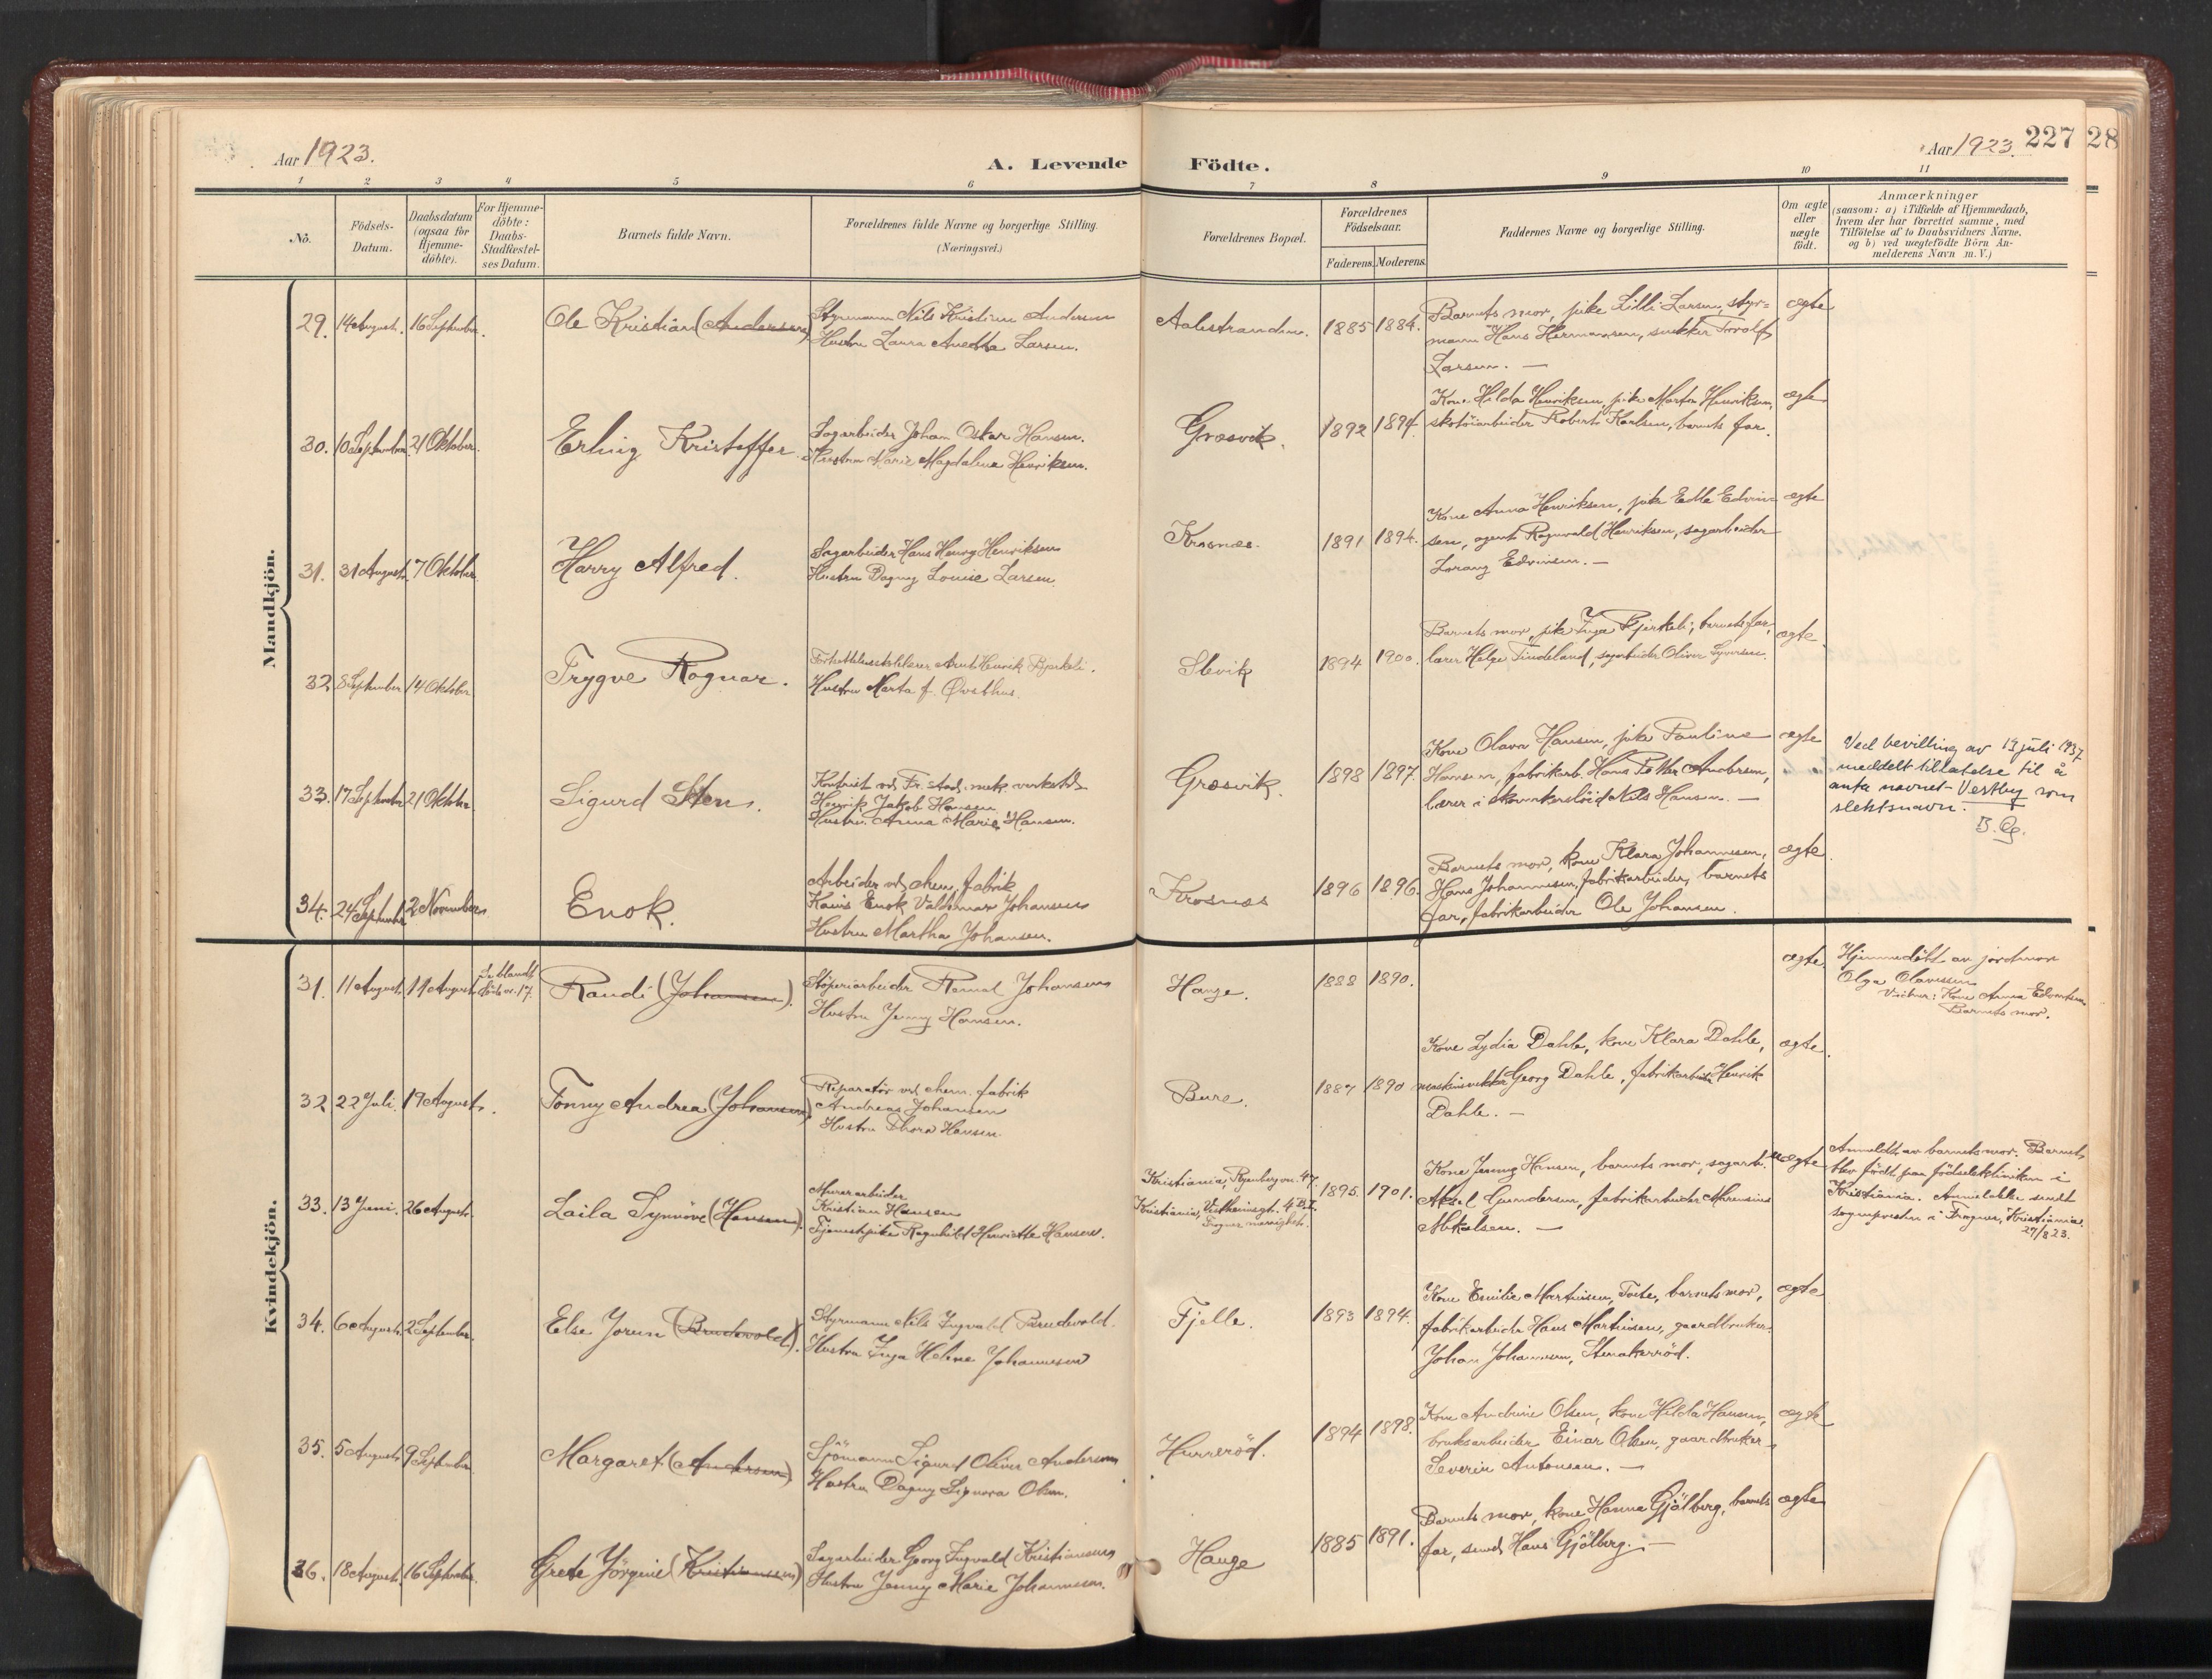 Aar 1923.
A. Levende Födte.
Aar 1923. 227 28
1 2 3 4 5 6 7 8 9 10 11
Nö.
Födsels-
Datum.
Daabsdatum
(ogsaa for
Hjemme-
döbte).
For Hjemme-
döbte:
Daabs-
Stadfæstel-
ses Datum.
Barnets fulde Navn.
Forældrenes fulde Navne og borgerlige Stilling.
(Næringsvei.)
Forældrenes Bopæl.
Forældrenes
Födselsaar.
Faderens. Moderens.
Faddernes Navne og borgerlige Stilling.
Om ægte
eller
uægte
födt.
Anmærkninger
(saasom: a) i Tilfælde af Hjemmedaab,
hvem der har forrettet samme, med
Tilföielse af to Daabsvidners Navne.
og b) ved uægtefödte Börn An-
melderens Navn m.V.)
Mandkjön.
29. 14 August. 16 September.
Ole Kristian (Andersen)
Styrmann Nils Kristian Andersen
Hustru Laura Anetta Larsen.
Aalestranden. 1885 1884.
Barnets mor, pike Lilli Larsen, styr=
mann Hans Hermansen, snekker Torolf
Larsen. —
ægte
30. 10 September. 21 Oktober.
Erling Kristoffer.
Sagarbeider Johan Oskar Hansen.
Hustru Marie Magdalena Henriksen.
Græsvik. 1892 1894.
Kone Hilda Henriksen, pike Marta Henriksen,
skotöiarbeider Robert Karlsen, barnets far.
ægte
31. 31 August. 7 Oktober.
Harry Alfred.
Sagarbeider Hans Henry Henriksen
Hustru Dagny Louise Larsen.
Krosnæs. 1891 1894.
Kone Anna Henriksen, pike Edle Edvin
sen, agent Ragnvald Henriksen, sagarbeider
Lorang Edvinsen. —
ægte
32. 8 September 14 Oktober.
Trygve Ragnar.
Hustru Marta f. Øvsthus.
Slevik 1894 1900.
Barnets mor, pike Inga Bjerkeli, barnets far,
lærer Helge Tindeland, sagarbeider Oliver Syversen.
ægte.
33. 17 September 21 Oktober.
Sigurd Sten.
Kontorist ved Fr.stad. mek. verksted
Henrik Jakob Hansen
Hustru. Anna Marie Hansen.
Græsvik. 1898 1897.
Kone Olava Hansen, pike Pauline
Hansen, fabrikarb. Hans Petter Andersen,
lærer i Nils Hansen. —
ægte
Ved bevilling av 19 juli 1937
meddelt tillatelse til å
anta navnet Vestby som
slektsnavn.
34. 24 September 2 November.
Enok.
Arbeider ved chem. fabrik
Enok Valdemar Johansen
Hustru Martha Johansen.
Krosnæs 1896 1896.
Barnets mor, kone Klara Johannesen,
Hans Johannesen, fabrikarbeider, barnets
far, fabrikarbeider Ole Johansen.
ægte.
Kvindekjön.
31. 11 August. 11 August
Se blandt
döde nr. 17.
Randi (Johansen).
Støperiarbeider Johansen
Hustru Jenny Hansen.
Hauge. 1888 1890.
ægte.
Hjemmedöbt av jordmor
Olga Olaussen
Vidner: Kone Anna Edvartsen.
Barnets mor.
32. 22 Juli. 19 August.
Tonny Andrea (Johansen)
Reparatör ved chem. fabrik
Andreas Johansen
Hustru Thora Hansen.
Bure. 1887 1890
Kone Lydia Dahle, kone Klara Dahle,
Georg Dahle, fabrikarbeider Henrik
Dahle. —
ægte.
33. 13 Juni. 26 August.
Laila Synnöve (Hansen).
Murerarbeider
Kristian Hansen
Tjenestepike Ragnhild Henriette Hansen.
Kristiania, 47.
Kristiania,
Frogner menighet.
1895. 1901.
Kone Jenny Hansen, barnets mor, sagarb.
Aksel Gundersen, fabrikarbeider Marensius
Mikalsen. —
uægte
Anmeldt av barnets mor. Barnet
blev født paa fødselsklinikken i
Kristiania. Anmeldelse sendt
sognepresten i Frogner, Kristiania
27/8 23.
34. 6 August. 2 September.
Else Jorun (Brudevold).
Styrmann Nils Ingvald Brudevold.
Hustru Inga Helene Johannesen
Fjelle. 1893 1894.
Kone Emilie Martinsen, Tose, barnets mor,
fabrikarbeider Hans Martinsen, gaardbruker
Johan Johannesen, Stenakerröd.
ægte
35. 5 August. 9 September
Margaret (Andersen)
Sjömann Sigurd Oliver Andersen
Hustru Dagny Signora Olsen.
Hurreröd. 1894 1898.
Kone Andrine Olsen, kone Hilda Hansen,
bruksarbeider Einar Olsen, gaardbruker
Severin Antonsen. —
ægte
36. 18 August. 16 September.
Grete Jörgine (Kristiansen)
Sagarbeider Georg Ingvald Kristiansen
Hustru Jenny Marie Johannesen.
Hauge 1885 1891.
Barnets mor, kone Hanna Gjölberg, barnets
far, smed Hans Gjölberg. —
ægte